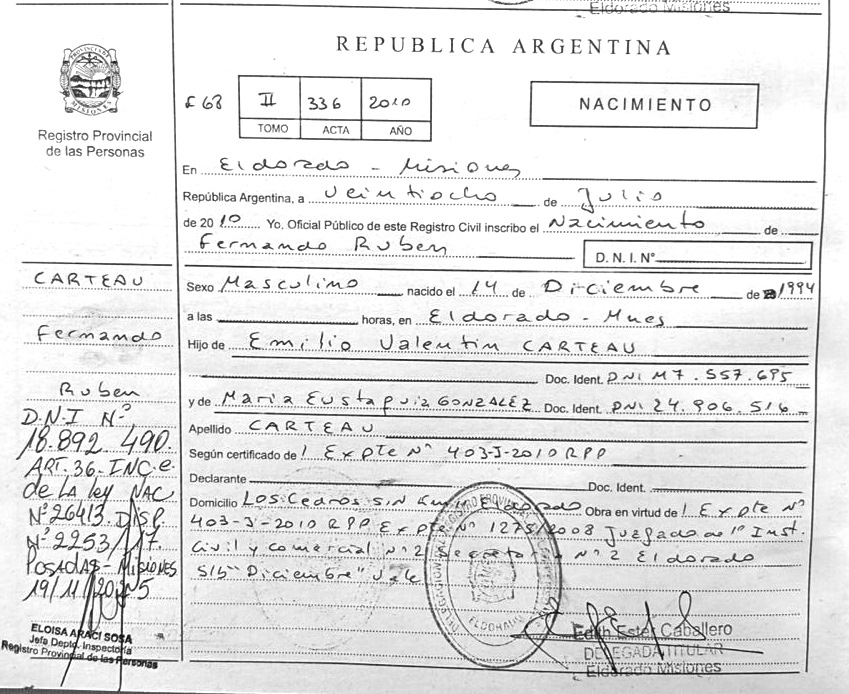 Eldorado Misiones
REPUBLICA ARGENTINA
PROVINCIA DE
MISIONES
Registro Provincial
de las Personas
F 68
II 336 2010
TOMO ACTA AÑO
NACIMIENTO
En Eldorado - Misiones
República Argentina, a Veintiocho de Julio
de 2010 Yo, Oficial Público de este Registro Civil inscribo el Nacimiento de
Fernando Ruben D.N.I. N°
Sexo Masculino nacido el 14 de Diciembre de 1994
a las horas, en Eldorado - Mnes
Hijo de Emilio Valentin CARTEAU
Doc. Ident. DNI M7.557.695
y de Maria Eustaquia GONZALEZ Doc. Ident. DNI 24.906.516
Apellido CARTEAU
Según certificado de Expte N° 403-J-2010 RPP
Declarante Doc. Ident.
Domicilio Los Cedros S/N Eldorado Obra en virtud de Expte N°
403-J-2010 RPP Expte N° 1275/2008 Juzgado de 1° Inst.
Civil y Comercial N° 2 N° 2 Eldorado
S/b "Diciembre" Vale
CARTEAU
Fernando
Ruben
D.N.I N°
18.892.490.
ART. 36-INC e.
de LA ley NAC
N° 26413. DISP
N° 2253/17.
POSADAS-Misiones
19/11/
ELOISA ARACI SOSA
Jefa Depto. Inspectoría
Registro Provincial de las Personas
ELDORADO
Edith Ester Caballero
DELEGADA TITULAR
Eldorado Misiones